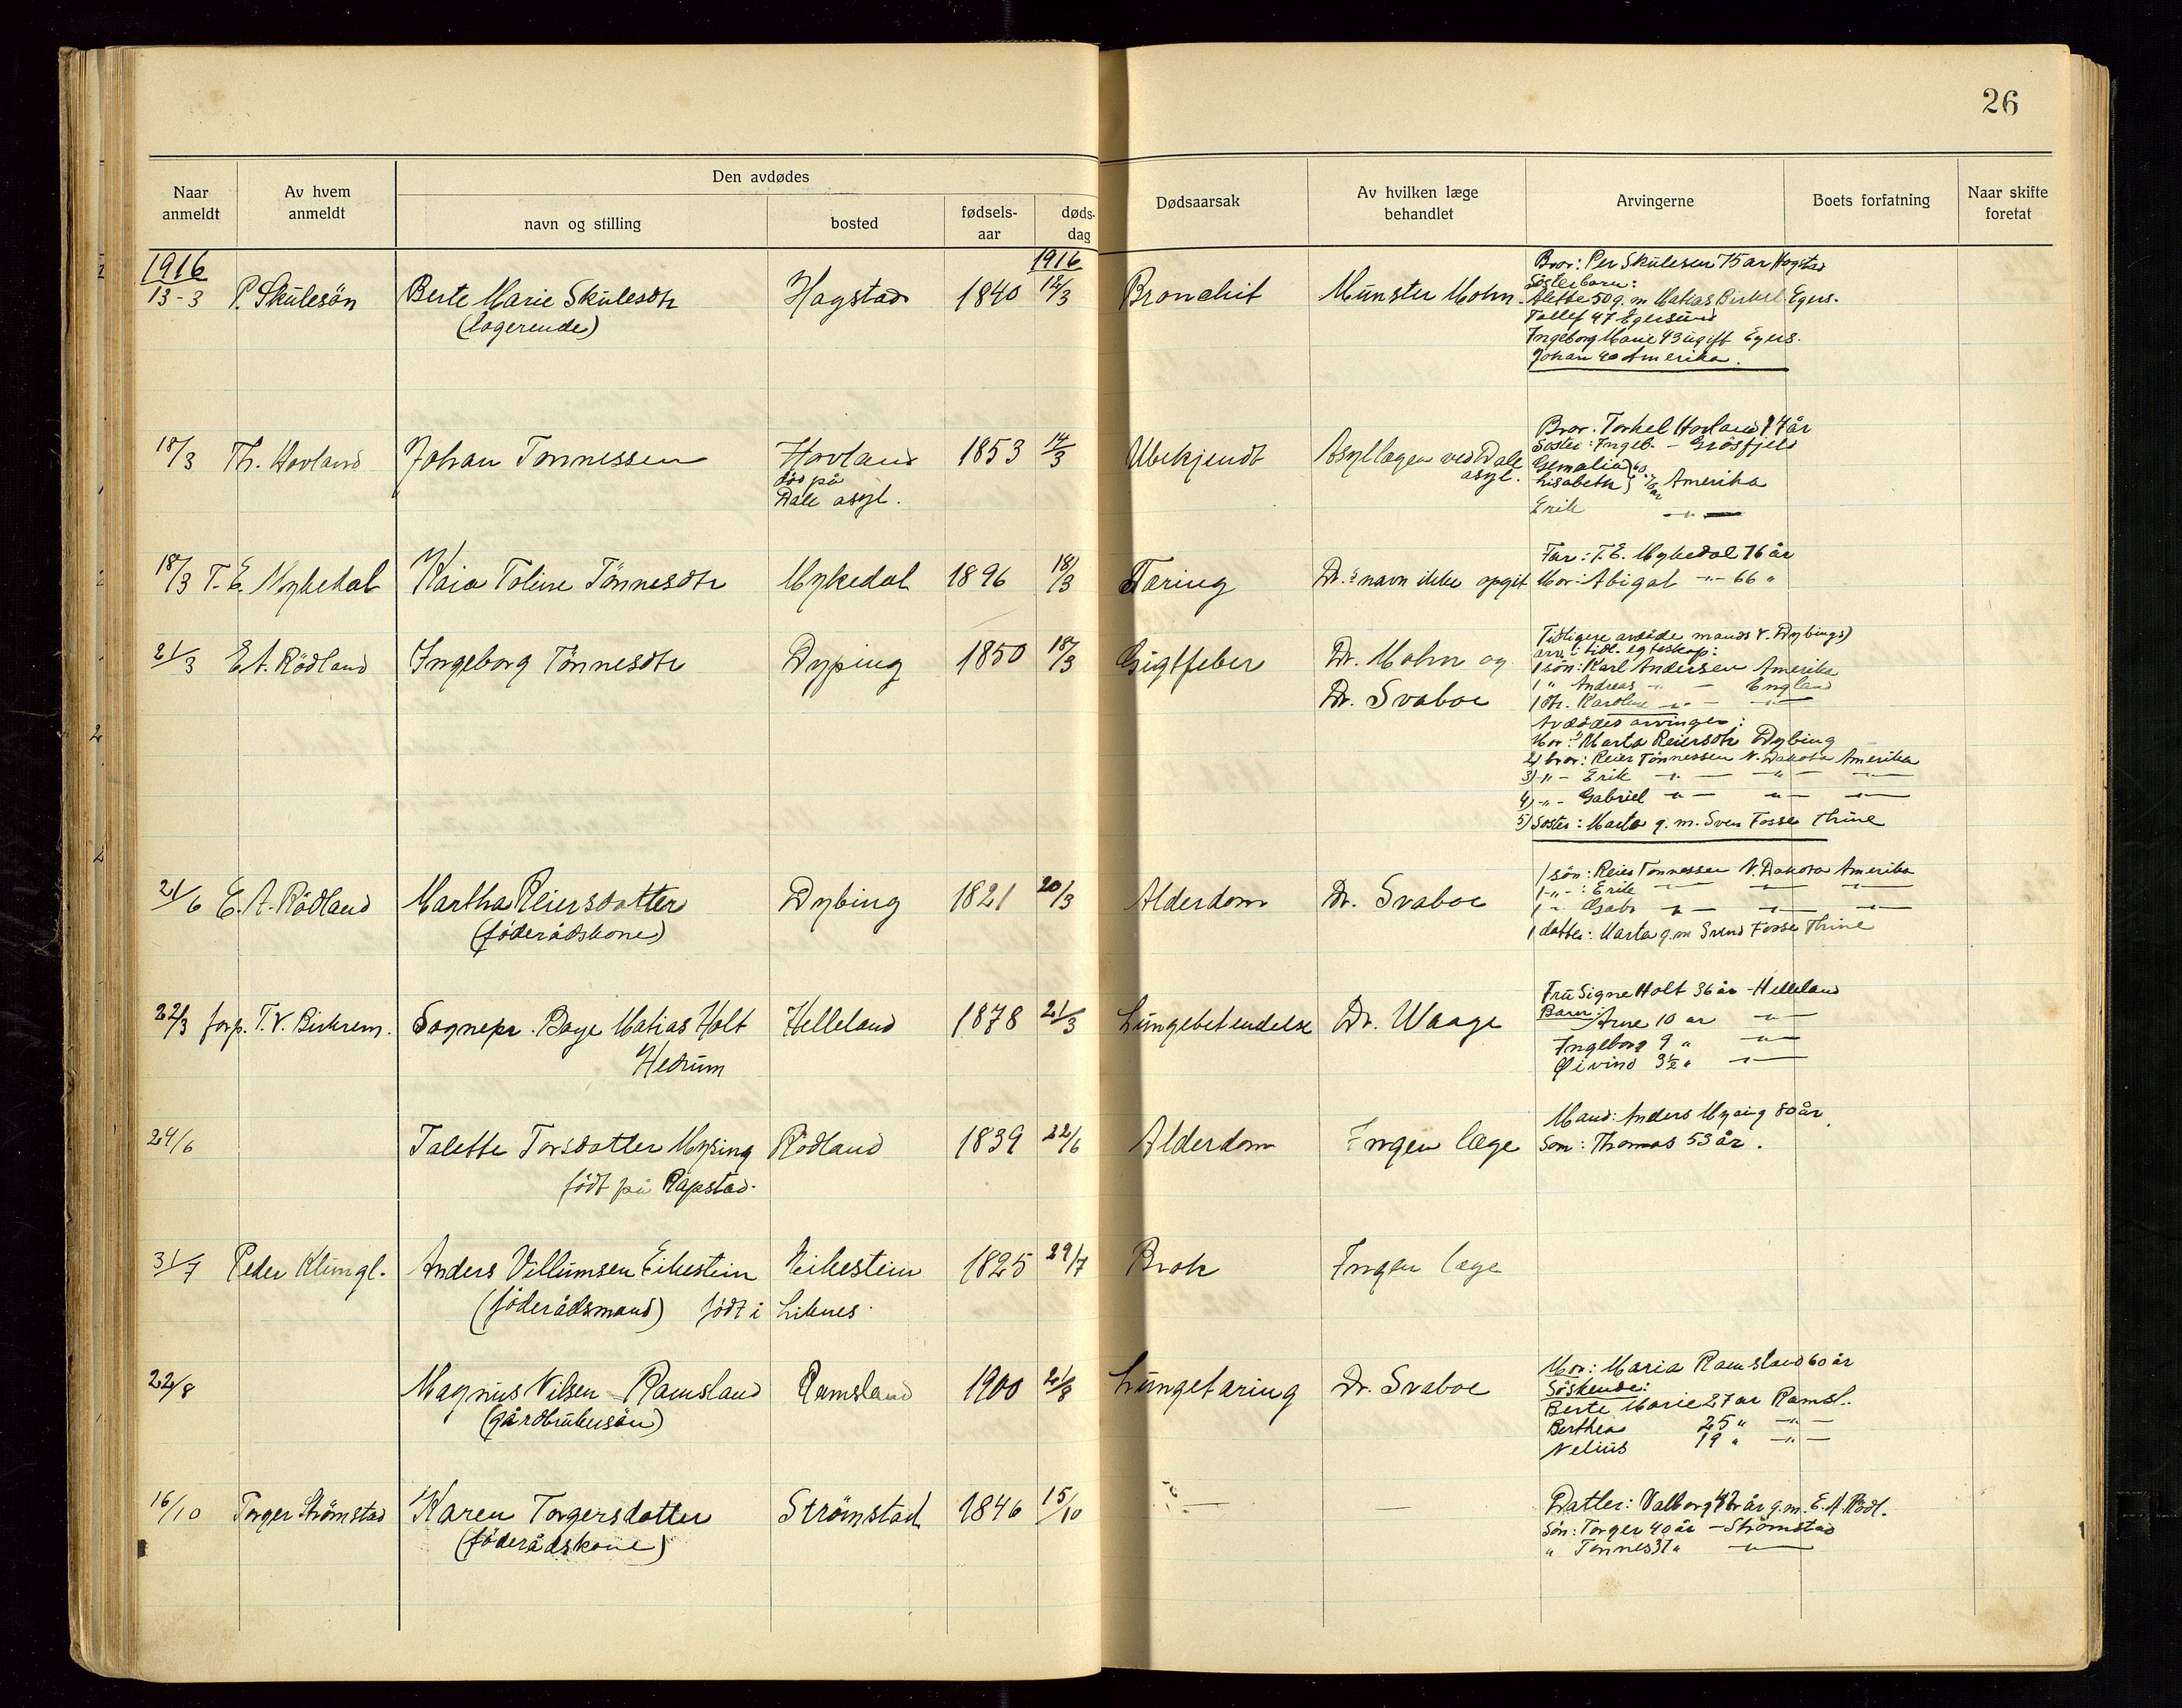 26
Naar anmeldt
Av hvem anmeldt
Den avdødes
navn og stilling
bosted
fødsels-aar
døds-dag
Dødsaarsak
Av hvilken læge behandlet
Arvingerne
Boets forfatning
Naar skifte foretat
1916
1916
13-3 P. Skulesön Berte Marie Skulesdtr Hagstad 1840 12/3 Bronchit Munster Mohn.
(logerende)
Bror: Per Skulesen 75 år Hagstad
Södterbarn:
Alette 50 g.m Matias Birkel Egers.
Tollef 47 Egersund
Ingeborg Marie 43 ugift Egers.
Johan 40 Amerika.
18/3 Th. Hovland Johan Tønnessen Hovland 1853 14/3 Ubekjendt Asyllægen ved Dale
død på
asyl.
Dale asyl.
Bror. Torkel Hovland 74 år
Søster: Ingeb. - Grösfjeld
Gemalia 60
Lisabeth Amerika
Erik -"-
18/3 T. E. Mykedal Kaia Toline Tønnesdtr Mykedal 1896 18/3 Tæring Dr.s navn ikke opgit
Far: T. E. Mykedal 76 år
Mor: Abigal -"- 66 "
21/3 E A. Rödland Ingeborg Tönnesdtr Dyping 1850 18/3 Gigtfeber Dr. Mohn og
Dr. Svaboe
Tidligere avdöde mands V. Dybings)
arv. i tidl. egteskap:
1 sön: Karl Andersen Amerika
1 " Andreas -"- England
1 dtr. Karoline -"- -"-
Avdödes arvinger:
Mor: 1) Marta Reiersdtr Dybing
2) bror: Reier Tönnessen N. Dakota Amerika
3) -"- Erik -"- -"- -"-
4) -"- Gabriel -"- -"- -"-
5) Søster: Marta g. m. Sven Fosse Thime
21/6 E. A. Rödland Martha Reiersdatter Dybing 1821 20/3 Alderdom Dr. Svaboe
(föderådskone)
1 sön: Reier Tønnessen N. Dakota Amerika
1 -"- : Erik -"- -"- -"-
1 -"- Gabr -"- -"- -"-
1 datter: Marta g.m Svend Fosse Thime
22/3 forp. T. V. Birkrem. Sognepr. Baye Matias Holt Helleland 1878 21/3 Lungebetendelse Dr. Waage
Hedrum
Fru Signe Holt 36 år - Helleland
Barn:
Arne 10 år -"-
Ingeborg 9 " -"-
Øivind 3½ " -"-
24/6 Talette Torsdatter Mysing Rödland 1839 22/6 Alderdom Ingen læge
födt på Rapstad.
Mand: Anders Mysing 80 år.
Søn: Thomas 53 år.
31/7 Peder Klungl. Anders Villumsen Eikestein Eikestein 1825 29/7 Brok Ingen læge
(föderådsmand) födt i Liknes.
22/8 Magnus Nilsen Ramsland Ramsland 1900 21/8 Lungetæring Dr. Svaboe
(gårdbrukersön)
Mor: Maria Ramsland 60 år
Söskende:
Berte Marie 27 år Ramsl.
Berthea 25 " -"-
Nelius 19 " -"-
16/10 Torger Strømstad Karen Torgersdatter Strömstad 1846 15/10 - -
(föderådskone)
Datter: Valborg 42 år g.m. E. A Rödl.
Søn: Torger 40 år - Strömstad
" Tønnes 37 " -"-